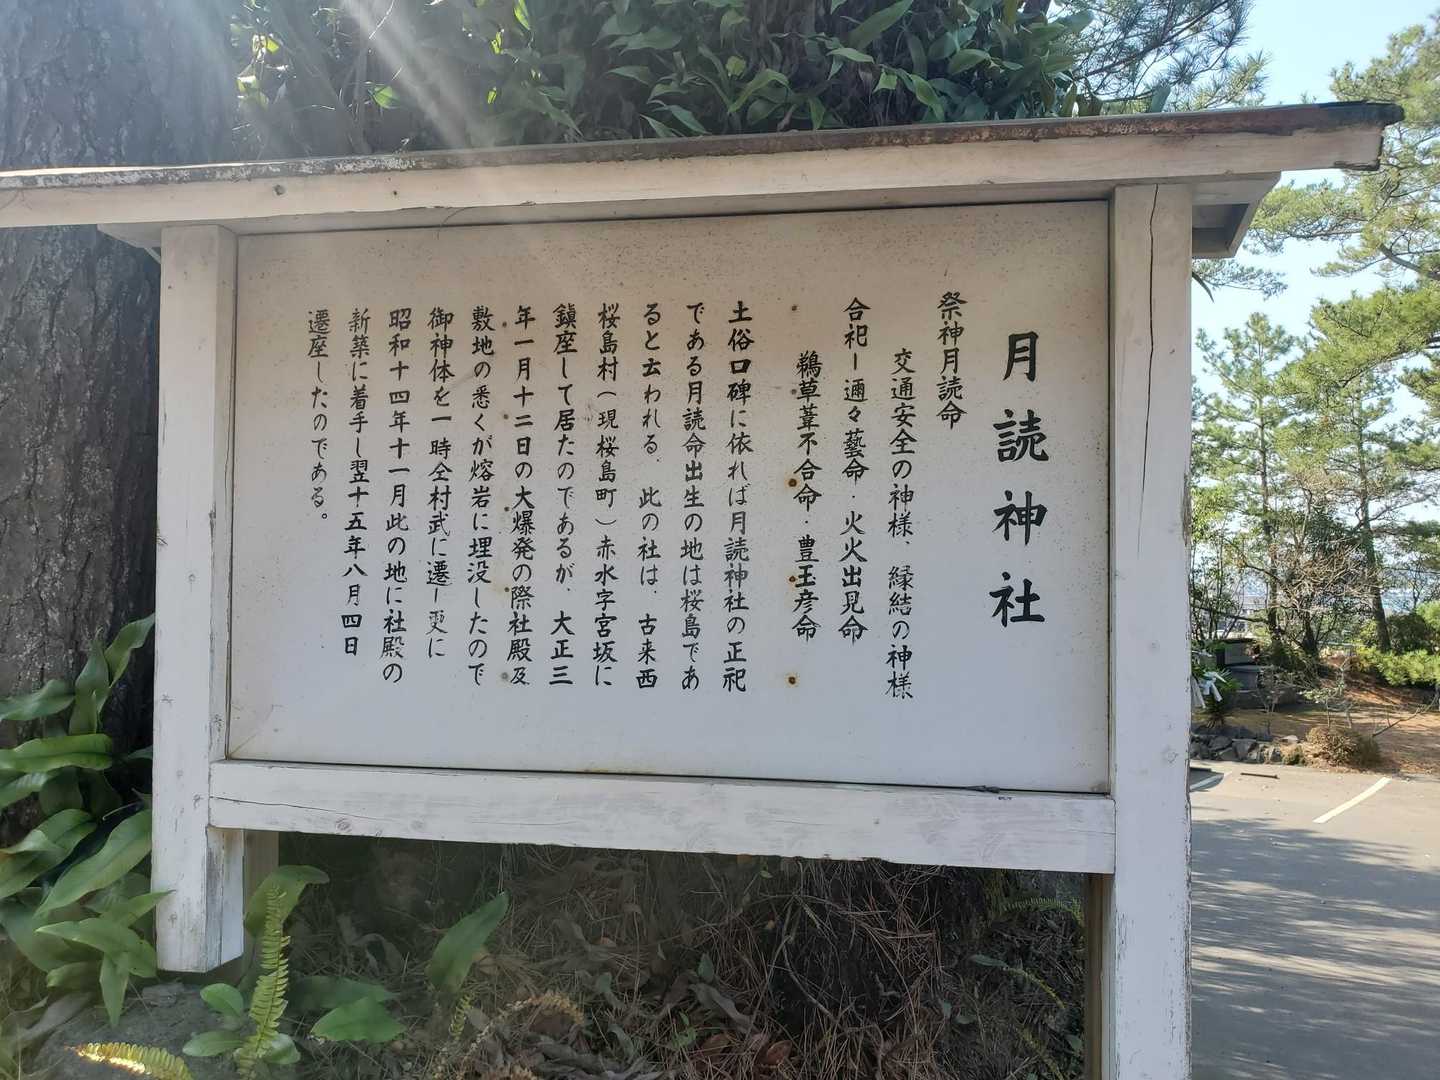 月読神社
祭神月読命
交通安全の神様、縁結の神様
合祀ー邇々藝命・火火出見命
鵜草葺不合命・豊玉彦命
土俗口碑に依れば月読神社の正祀
である月読命出生の地は桜島であ
ると云われる。此の社は、古来西
桜島村(現桜島町)赤水字宮坂に
鎮座して居たのであるが、大正三
年一月十二日の大爆発の際社殿及
敷地の悉くが熔岩に埋没したので
御神体を一時仝村武に遷し更に
昭和十四年十一月此の地に社殿の
新築に着手し翌十五年八月四日
遷座したのである。